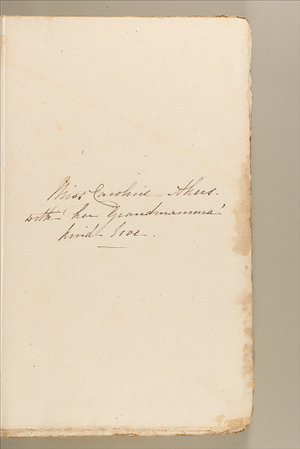 Miss Caroline Akers.
with her Grandmamma'
kind love.